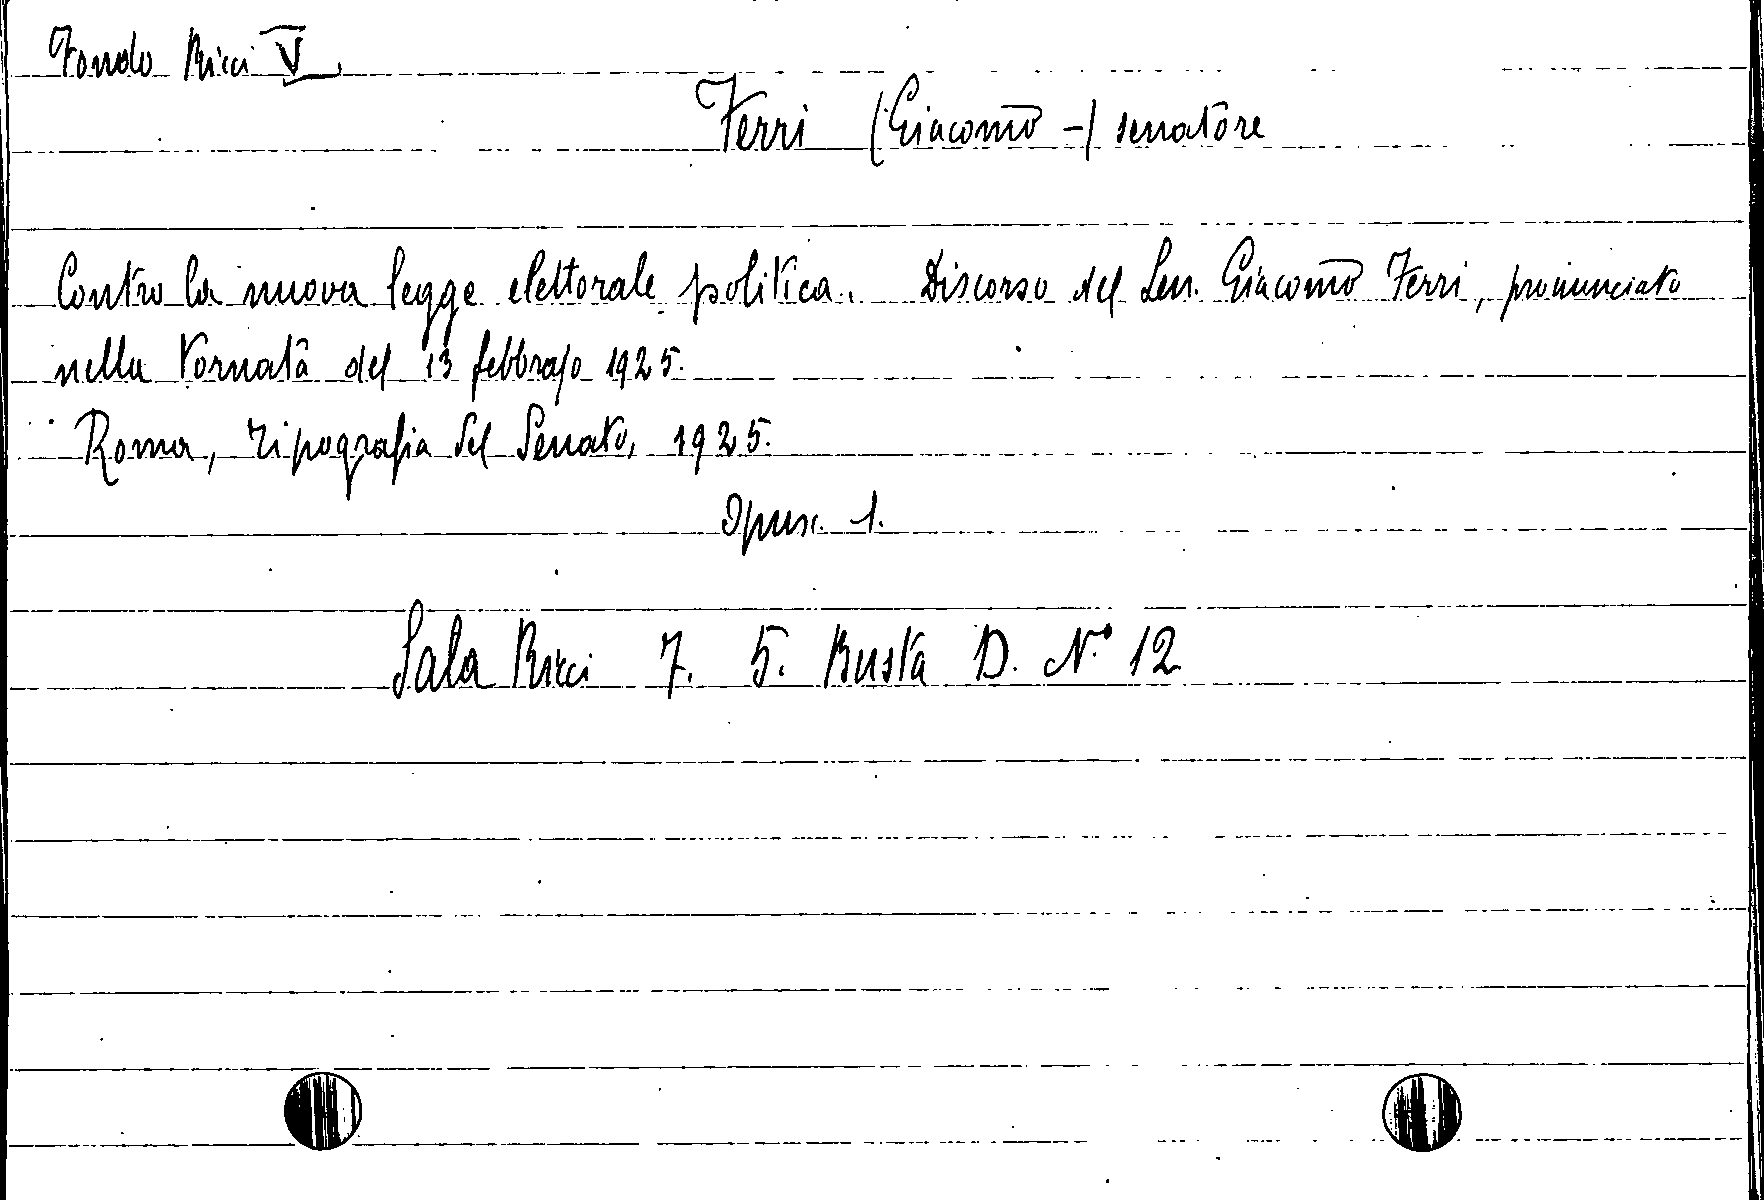 Fondo Ricci V
Ferri (Giacomo -) senatore
Contro la nuova legge elettorale politica. Discorso del Sen. Giacomo Ferri, pronunciato
nella tornata del 13 febbrajo 1925.
Roma, tipografia del Senato, 1925.
Opusc. 1.
Sala Ricci 7. 5. Busta D. N.º 12